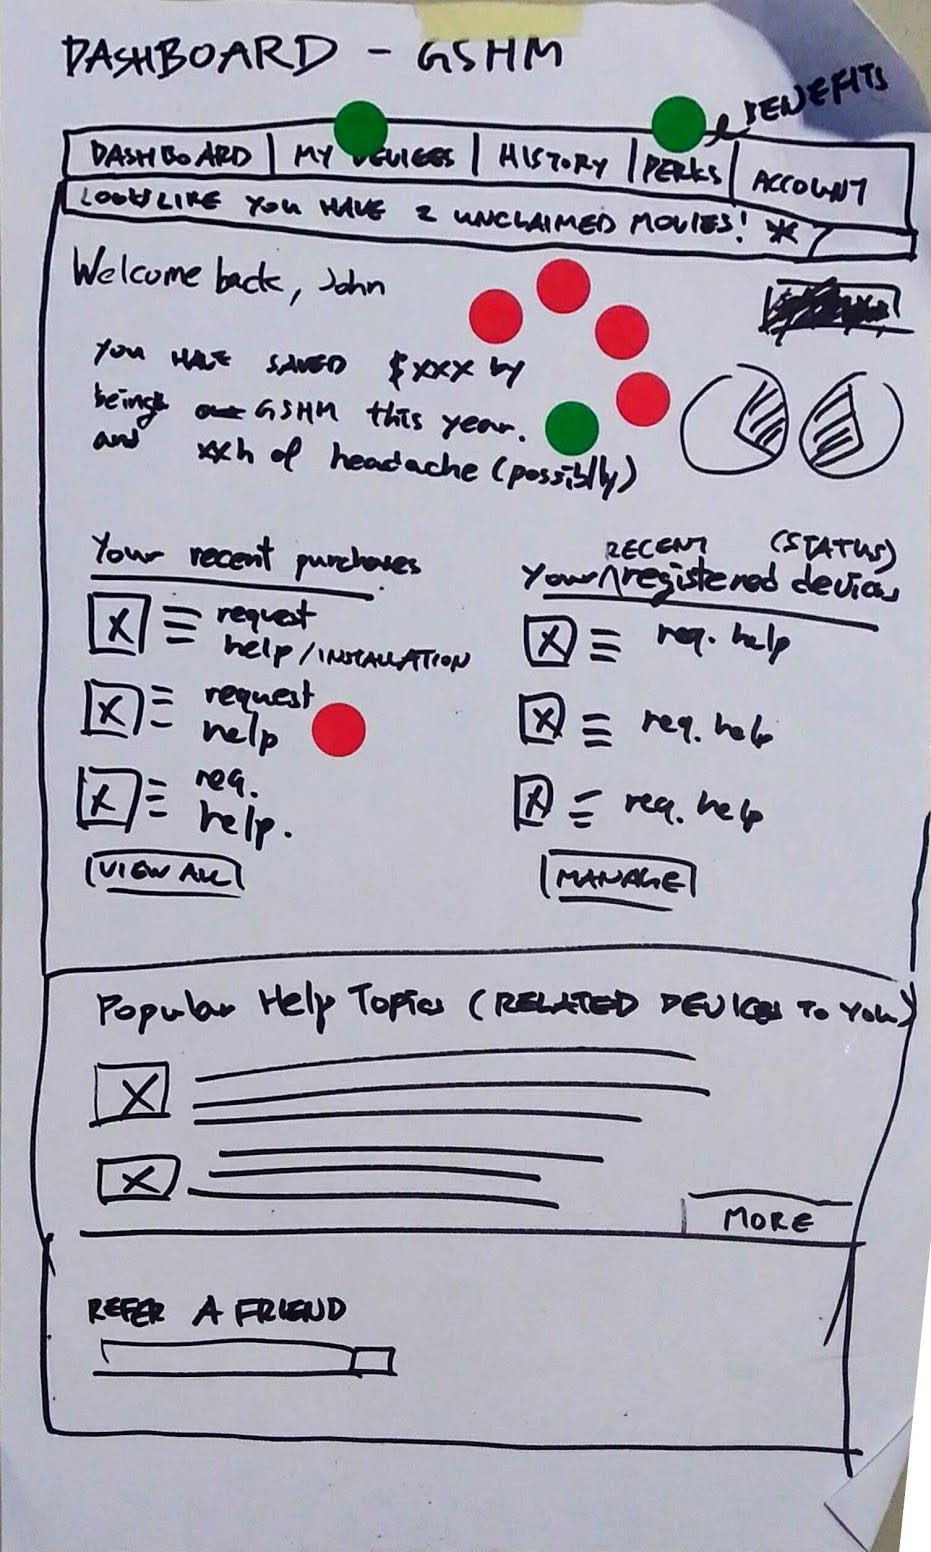 DASHBOARD - GSHM
BENEFITS
DASHBOARD | MY DEVICES | HISTORY | PERKS | ACCOUNT
LOOKS LIKE YOU HAVE 2 UNCLAIMED MOVIES! *
Welcome back, John
You HAVE SAVED $XXX by
being GSHM this year.
and xxh of headache (possibly)
Your recent purchases
request
help/INSTALLATION
request
help
req.
help.
VIEW ALL
RECENT (STATUS)
Your registered devices
req. help
req. help
req. help
MANAGE
Popular Help Topics (RELATED DEVICES TO YOU)
MORE
REFER A FRIEND